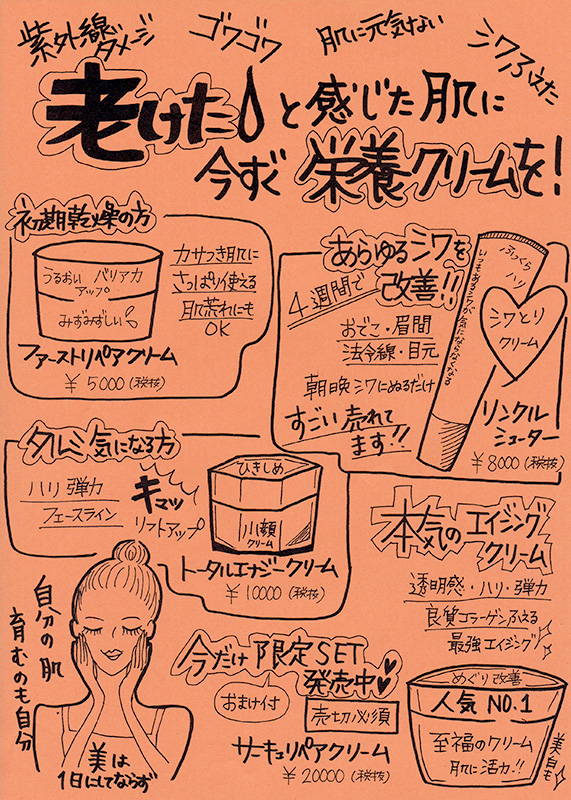 紫外線
ダメージ
ゴワゴワ
肌に元気ない
シワふえた
老けた
と感じた肌に
今すぐ栄養クリームを!
初期乾燥の方
うるおい バリア力
アップ
みずみずしい
カサつき肌に
さっぱり使える
肌荒れにも
OK
ファーストリペアクリーム
¥5000(税抜)
あらゆるシワを
改善!!
4週間で
おでこ・眉間
法令線・目元
朝晩シワにぬるだけ
すごい売れて
ます!!
ふっくら
ハリ
いつもあるシワが気にならなくなる
シワとり
クリーム
リンクル
シューター
¥8000(税抜)
タルミ気になる方
ハリ 弾力
フェースライン
キュッ
リフトアップ
ひきしめ
小顔
クリーム
トータルエナジークリーム
¥10000(税抜)
本気のエイジング
クリーム
透明感・ハリ・弾力
良質コラーゲンふえる
最強エイジング
自分の肌
育むのも自分
美は
1日にしてならず
今だけ限定SET
発売中
おまけ付
売切必須
サーキュリペアクリーム
¥20000(税抜)
めぐり改善
人気NO.1
至福のクリーム
肌に活力!!
美白も